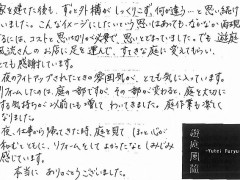 家を建てた後も、ずっと外構がしっくりこず、何か違う…と思い続け
いました。こんなイメージにしたいという思いはあってもなかなか再現
るには、コストと思い切りが必要で、思いとどまっていました。でも遊庭
風流さんのお店に足を運んで、すてきな庭に変えてもらい
とても感謝しています。
夜のライトアップされたときの雰囲気が、とても気に入っています。
リフォームしたのは、庭の一部ですが、その一部が変わると、庭を大切に
する気持ちが以前にも増してわいてきました。庭作業も楽しく
なりました。
夜、仕事から帰ってきた時、庭を見て ほっと心が
和むとともに、リフォームをしてよかったなとしみじみ
感じています。
本当に ありがとうございました。
遊庭風流
Yutei Furyu